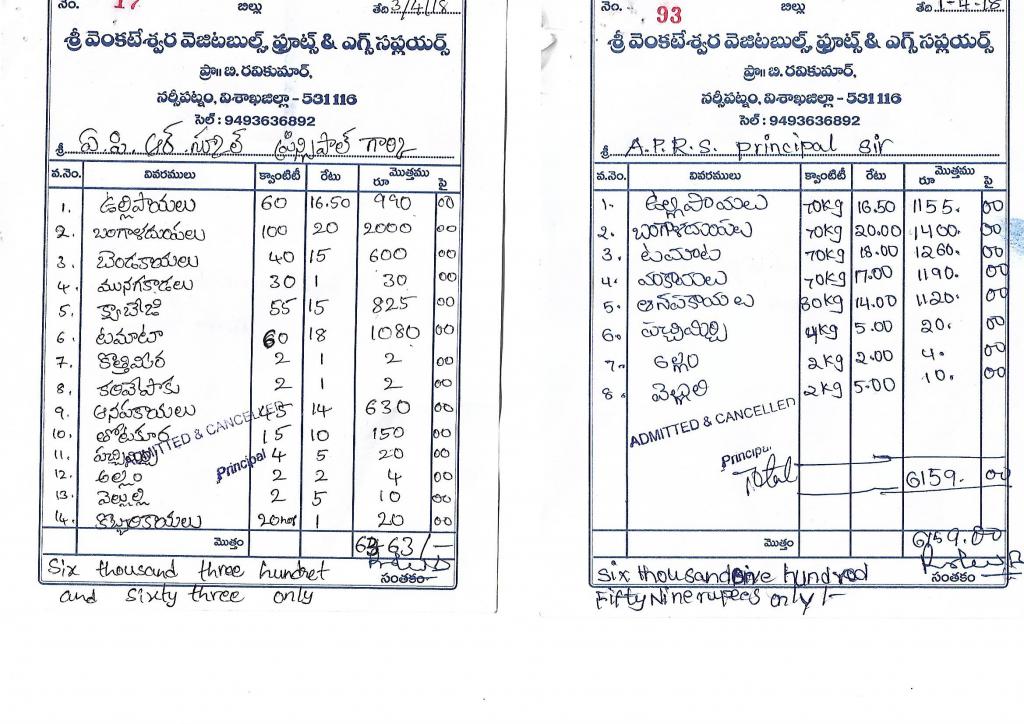 నెం. 17 బిల్లు తేది 3/4/18
శ్రీ వెంకటేశ్వర వెజిటబుల్స్, ఫ్రూట్స్ & ఎగ్స్ సప్లయర్స్
ప్రొ॥ బి. రవికుమార్,
నర్సీపట్నం, విశాఖజిల్లా - 531116
సెల్ : 9493636892
శ్రీ ఏ.పి. ఆర్. స్కూల్ ప్రిన్సిపాల్ గారికి
వ.నెం. వివరములు క్వాంటిటీ రేటు మొత్తము రూ పై
1. ఉల్లిపాయలు 60 16.50 990 00
2. బంగాళదుంపలు 100 20 2000 00
3. బెండకాయలు 40 15 600 00
4. మునగకాడలు 30 1 30 00
5. క్యాబేజి 55 15 825 00
6. టమాటా 60 18 1080 00
7. కొత్తిమీర 2 1 2 00
8. కరివేపాకు 2 1 2 00
9. ఆనపకాయలు 45 14 630 00
10. తోటకూర 15 10 150 00
11. పచ్చిమిర్చి 4 5 20 00
12. అల్లం 2 2 4 00
13. వెల్లుల్లి 2 5 10 00
14. కొబ్బరికాయలు 20 nos 1 20 00
ADMITTED & CANCELLED
Principal
మొత్తం 6363/-
Six thousand three hundret
and sixty three only
సంతకం
నెం. 93 బిల్లు తేది 1-4-18
శ్రీ వెంకటేశ్వర వెజిటబుల్స్, ఫ్రూట్స్ & ఎగ్స్ సప్లయర్స్
ప్రొ॥ బి. రవికుమార్,
నర్సీపట్నం, విశాఖజిల్లా - 531116
సెల్ : 9493636892
శ్రీ A.P.R.S. principal sir
వ.నెం. వివరములు క్వాంటిటీ రేటు మొత్తము రూ పై
1. ఉల్లిపాయలు 70kg 16.50 1155. 00
2. బంగాళదుంపలు 70kg 20.00 1400. 00
3. టమాట 70kg 18.00 1260. 00
4. వంకాయలు 70kg 17.00 1190. 00
5. ఆనపకాయలు 80kg 14.00 1120. 00
6. పచ్చిమిర్చి 4kg 5.00 20. 00
7. అల్లం 2kg 2.00 4. 00
8. వెల్లుల్లి 2kg 5.00 10. 00
ADMITTED & CANCELLED
Principal
Total 6159. 00
మొత్తం 6159.00
Six thousand one hundred
Fifty Nine rupees only/-
సంతకం